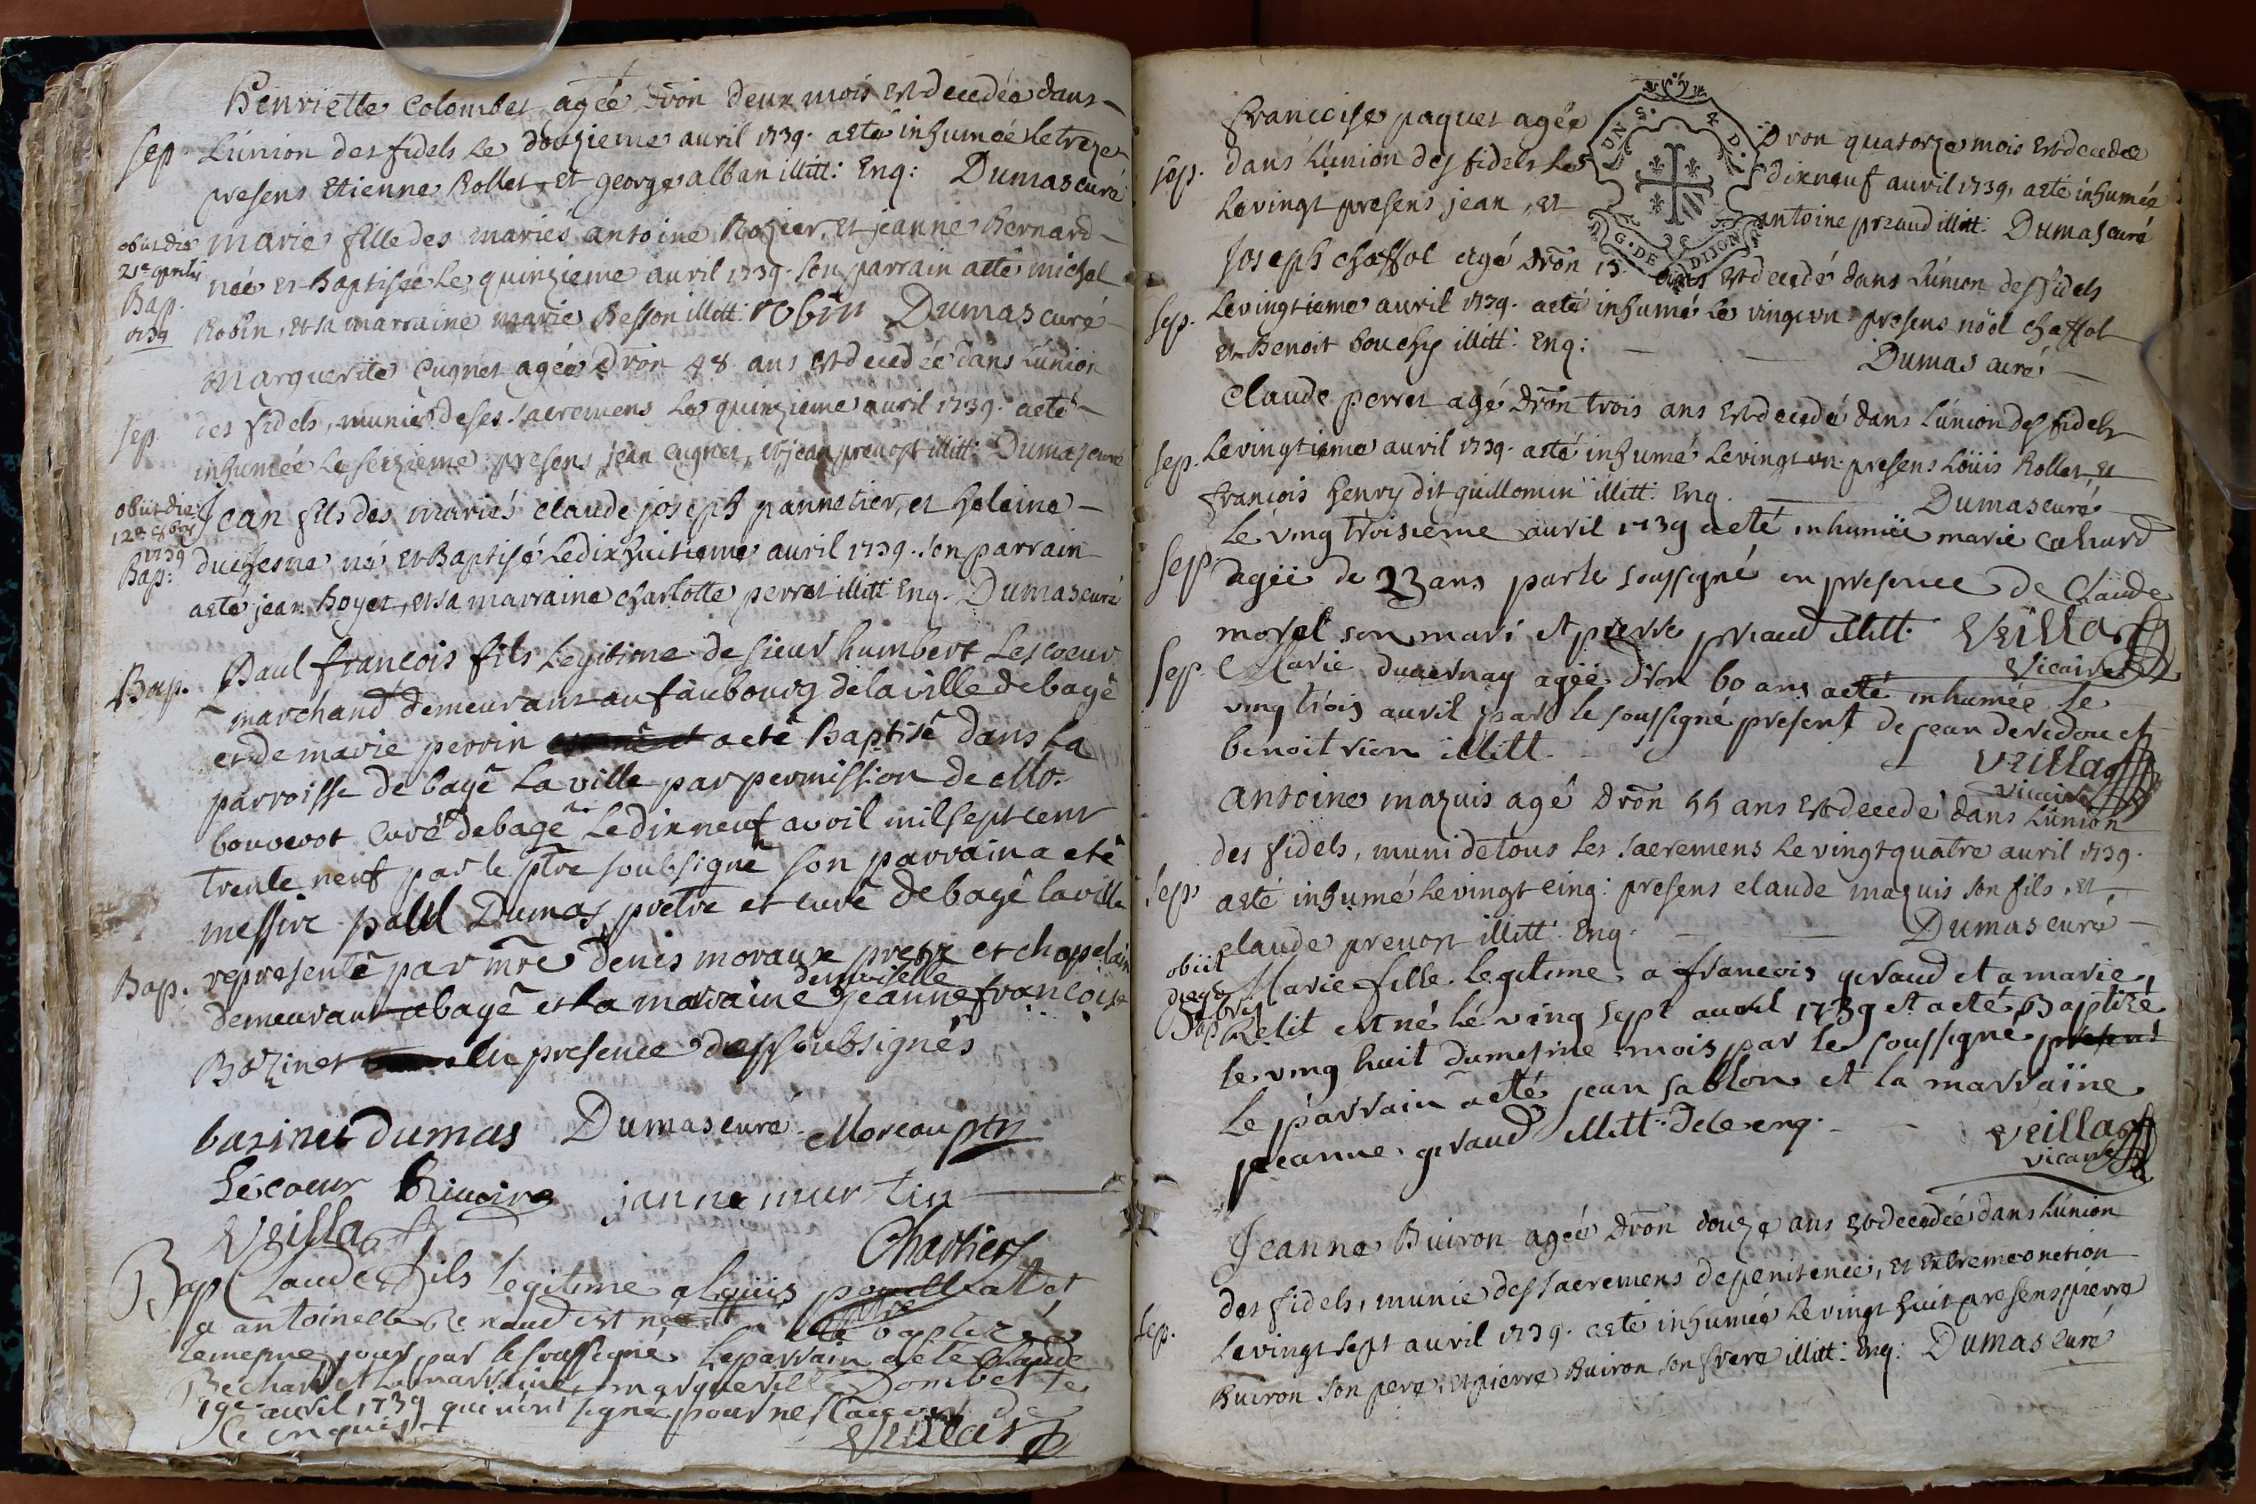 henriette Colombet agée dron deux mois est decedée dans
Sep. L'union des fidels Le douzieme avril 1739. a eté inhumée Le treze
presens Etienne Rollet et george alban illitt: Enq: Dumas curé
obiit die marie fille des mariés antoine Rozier, et jeanne Bernard
21e aprilis née et Baptisée Le quinzieme avril 1739. son parrain a eté michel
Bap. Robin, et sa marraine marie Besson illitt. robin Dumas curé
1739
Marguerite Cugnet agée dron 48 ans est decedée dans L'union
Sep. des fidels, munie de ses sacremens Le quinzieme avril 1739. a eté
inhumée Le seizieme presens jean Cugnet, et jean prevost illitt: Dumas curé
obiit die Jean fils des mariés claude joseph pannetier, et heleine
12e 8bris
1739
Bap: duchesne né et Baptisé Le dix huitieme avril 1739. son parrain
a eté jean boyer, et sa marraine charlotte perret illitt Enq. Dumas curé
Bap. Paul francois fils Legitime de sieur humbert Lescoeur
marchand demeurant au faubourg de la ville de bagé
et de marie perrin a eté Baptisé dans La
parroisse de bagé La ville par permission de Mr.
bouverot Curé de bagé Le dix neuf avril mil sept cent
trente neuf par le ptre soubsigné son parrain a eté
messire paul Dumas pretre et curé de bagé la ville
Bap. representé par mre denis moraux pretre et chapelain
demoiselle
demeurant a bagé et La maraine jeanne francoise
Bozinet En presence des soubsignés
bazinet dumas Dumas curé Moreau ptre
Lescoeur Rivoire janne martin
Veillas Charliers
Bap Claude fils legitime a Louis et
a antoinette Renaud est né et a eté baptizé
le mesme jour par le soussigné Le parrain a eté Claude
Bechard et La marraine marguerite Dombet le
19e avril 1739 qui n'ont signé pour ne scavoir de
ce enquis Veillas
francoise paquet agée dron quatorze mois est decedée
Sep. dans L'union des fidels Le dix neuf avril 1739. a eté inhumée
Le vingt presens jean, et antoine preaud illitt: Dumas curé
DNS. 4 D.
G. DE DIJON
Joseph chaffol agé dron 13. ans est decedé dans L'union des fidels
Sep. Le vingtieme avril 1739. a eté inhumé Le vingt un presens noël chaffol
et Benoit bouchy illitt: Enq: Dumas curé
Claude perret agé dron trois ans est decedé dans L'union des fidels
Sep. Le vingtieme avril 1739. a eté inhumé Le vingt un presens Loüis Rollet, et
francois henry dit guillomin illitt: Enq. Dumas curé
Le ving troisieme avril 1739 a eté inhumée marie Cahurd
Sep agée de 23 ans par le soussigné en presence de Claude
morel son mari et pierre preaud illitt. Veillas
Vicaire
Sep. Marie ducernay agée dron 60 ans a eté inhumée le
ving trois avril par le soussigné present de jean devedou et
benoit vion illitt. Veillas
Vicaire
antoine mazuis agé dron 55 ans est decedé dans L'union
des fidels, muni de tous Les sacremens Le vingt quatre avril 1739.
Sep a eté inhumé Le vingt cinq: presens claude mazuis son fils, et
claude prevost illitt. Enq. Dumas curé
obiit Marie fille legitime a francois giraud et a marie
Bap. Relit est né le ving sept avril 1739 et a eté Baptizé
le ving huit du mesme mois par le soussigné present
Le parrain a eté jean sablon et la marraine
jeanne giraud illitt. de ce enq. Veillas
vicaire
Jeanne Buiron agée dron douze ans est decedée dans L'union
des fidels, munie des sacremens de penitence, et Extremeonction
Sep. Le vingt sept avril 1739. a eté inhumée Le vingt huit presens pierre
Buiron son pere, et pierre Buiron, son frere illitt: Enq: Dumas Curé